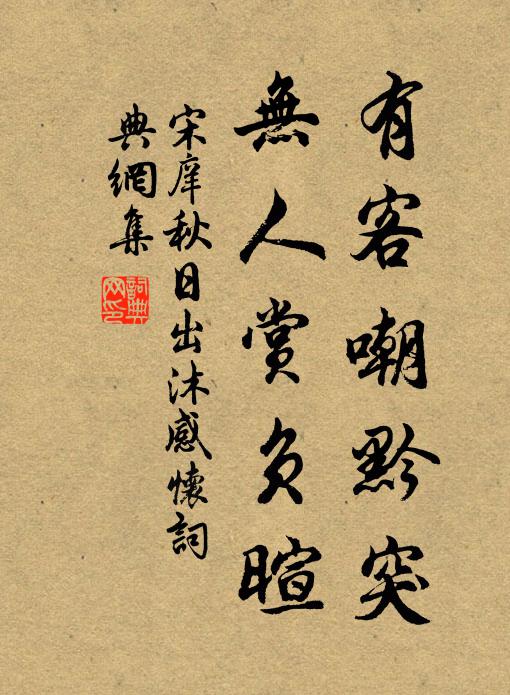 有客嘲黔突
無人賞負暄
宋庠秋日出沐感懷詞
典網集
詞典
网印